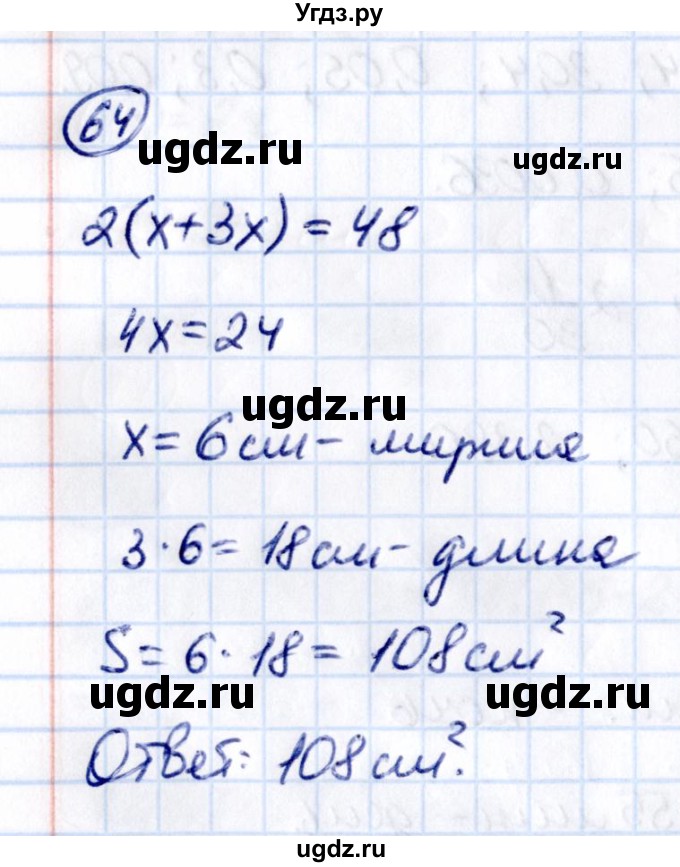 Угдз.ру
64
ugdz.ru
2(x+3x) = 48
4x = 24
ugdz.ru
x = 6 см - ширина
3·6 = 18 см - длина
S = 6·18 = 108 см²
ugdz.ru ugdz.ru
Ответ: 108 см².
ugdz.ru